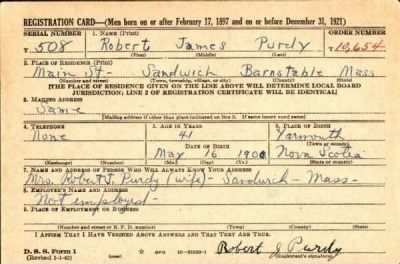 REGISTRATION CARD—(Men born on or after February 17, 1897 and on or before December 31, 1921)
SERIAL NUMBER 1. NAME (Print) ORDER NUMBER
T 508 Robert James Purdy T10,654
(First) (Middle) (Last)
2. PLACE OF RESIDENCE (Print)
Main St- Sandwich Barnstable Mass
(Number and street) (Town, township, village, or city) (County) (State)
[THE PLACE OF RESIDENCE GIVEN ON THE LINE ABOVE WILL DETERMINE LOCAL BOARD
JURISDICTION; LINE 2 OF REGISTRATION CERTIFICATE WILL BE IDENTICAL]
3. MAILING ADDRESS
Same
[Mailing address if other than place indicated on line 2. If same insert word same]
4. TELEPHONE 5. AGE IN YEARS 6. PLACE OF BIRTH
None 41 Yarmouth
DATE OF BIRTH (Town or county)
May 16 1900 Nova Scotia
(Exchange) (Number) (Mo.) (Day) (Yr.) (State or country)
7. NAME AND ADDRESS OF PERSON WHO WILL ALWAYS KNOW YOUR ADDRESS
Mrs. Robert J. Purdy (wife)- Sandwich- Mass-
8. EMPLOYER'S NAME AND ADDRESS
Not employed-
9. PLACE OF EMPLOYMENT OR BUSINESS
(Number and street or R. F. D. number) (Town) (County) (State)
I AFFIRM THAT I HAVE VERIFIED ABOVE ANSWERS AND THAT THEY ARE TRUE.
D. S. S. Form 1
(Revised 1-1-42) (over) Robert J. Purdy